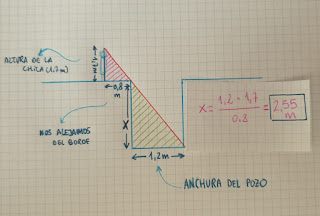 ALTURA DE LA
CHICA (1,7m)
1,7m
0,8
m
NOS ALEJAMOS
DEL BORDE
X
1,2m
ANCHURA DEL POZO
X = 1,2 · 1,7 / 0,8 = 2,55
m